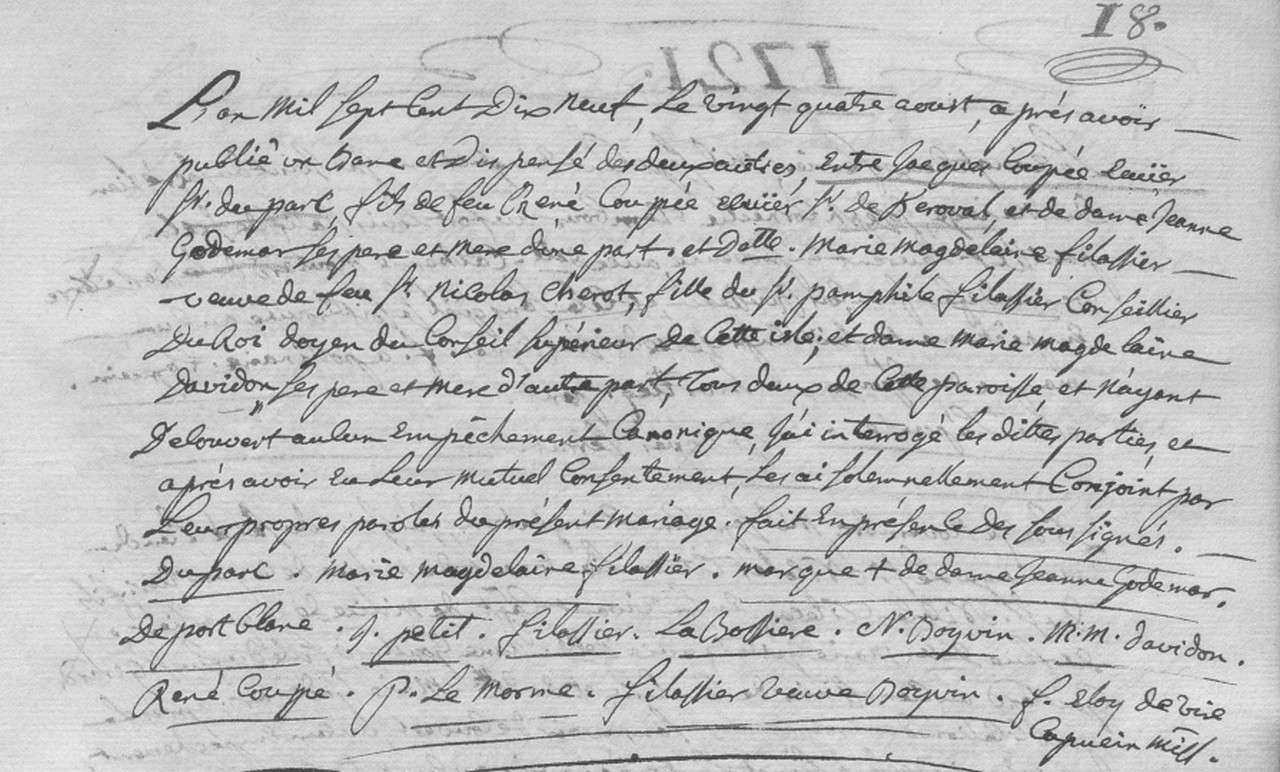 18.
1721.
L'an mil sept cent Dix neuf, Le vingt quatre aoust, après avoir
publié un Banc et Dispensé des deux autres, Entre Jacques Coupée ecuïer
Sr. du parc, fils de feu René Coupée ecuïer Sr. de Béroval, et de dame Jeanne
Godemar ses pere et mere d'une part, et Dalle. Marie Magdelaine filassier
veuve de feu Sr. Nicolas Cherot, fille du Sr. pamphile filassier Conseillier
Du Roi doyen du Conseil supérieur de Cette isle, et dame Marie magdelaine
davidon ses pere et mere d'autre part, Tous deux de Cette paroisse et N'ayant
Découvert aucun Empêchement Canonique, j'ai interrogé les dittes parties, et
après avoir eu Leur mutuel Consentement, Les ai solemnellement Conjoint par
Leurs propres paroles du présent mariage. fait En présence Des sous signés.
Duparc. Marie Magdelaine filassier. marque + de dame Jeanne Godemar.
De port blanc. J. petit. filassier. La Bossiere. N. Boyvin. M.M. davidon.
René Coupé. P. Le Morme. filassier veuve Boyvin. f. eloy de vire
Capucin Miss.